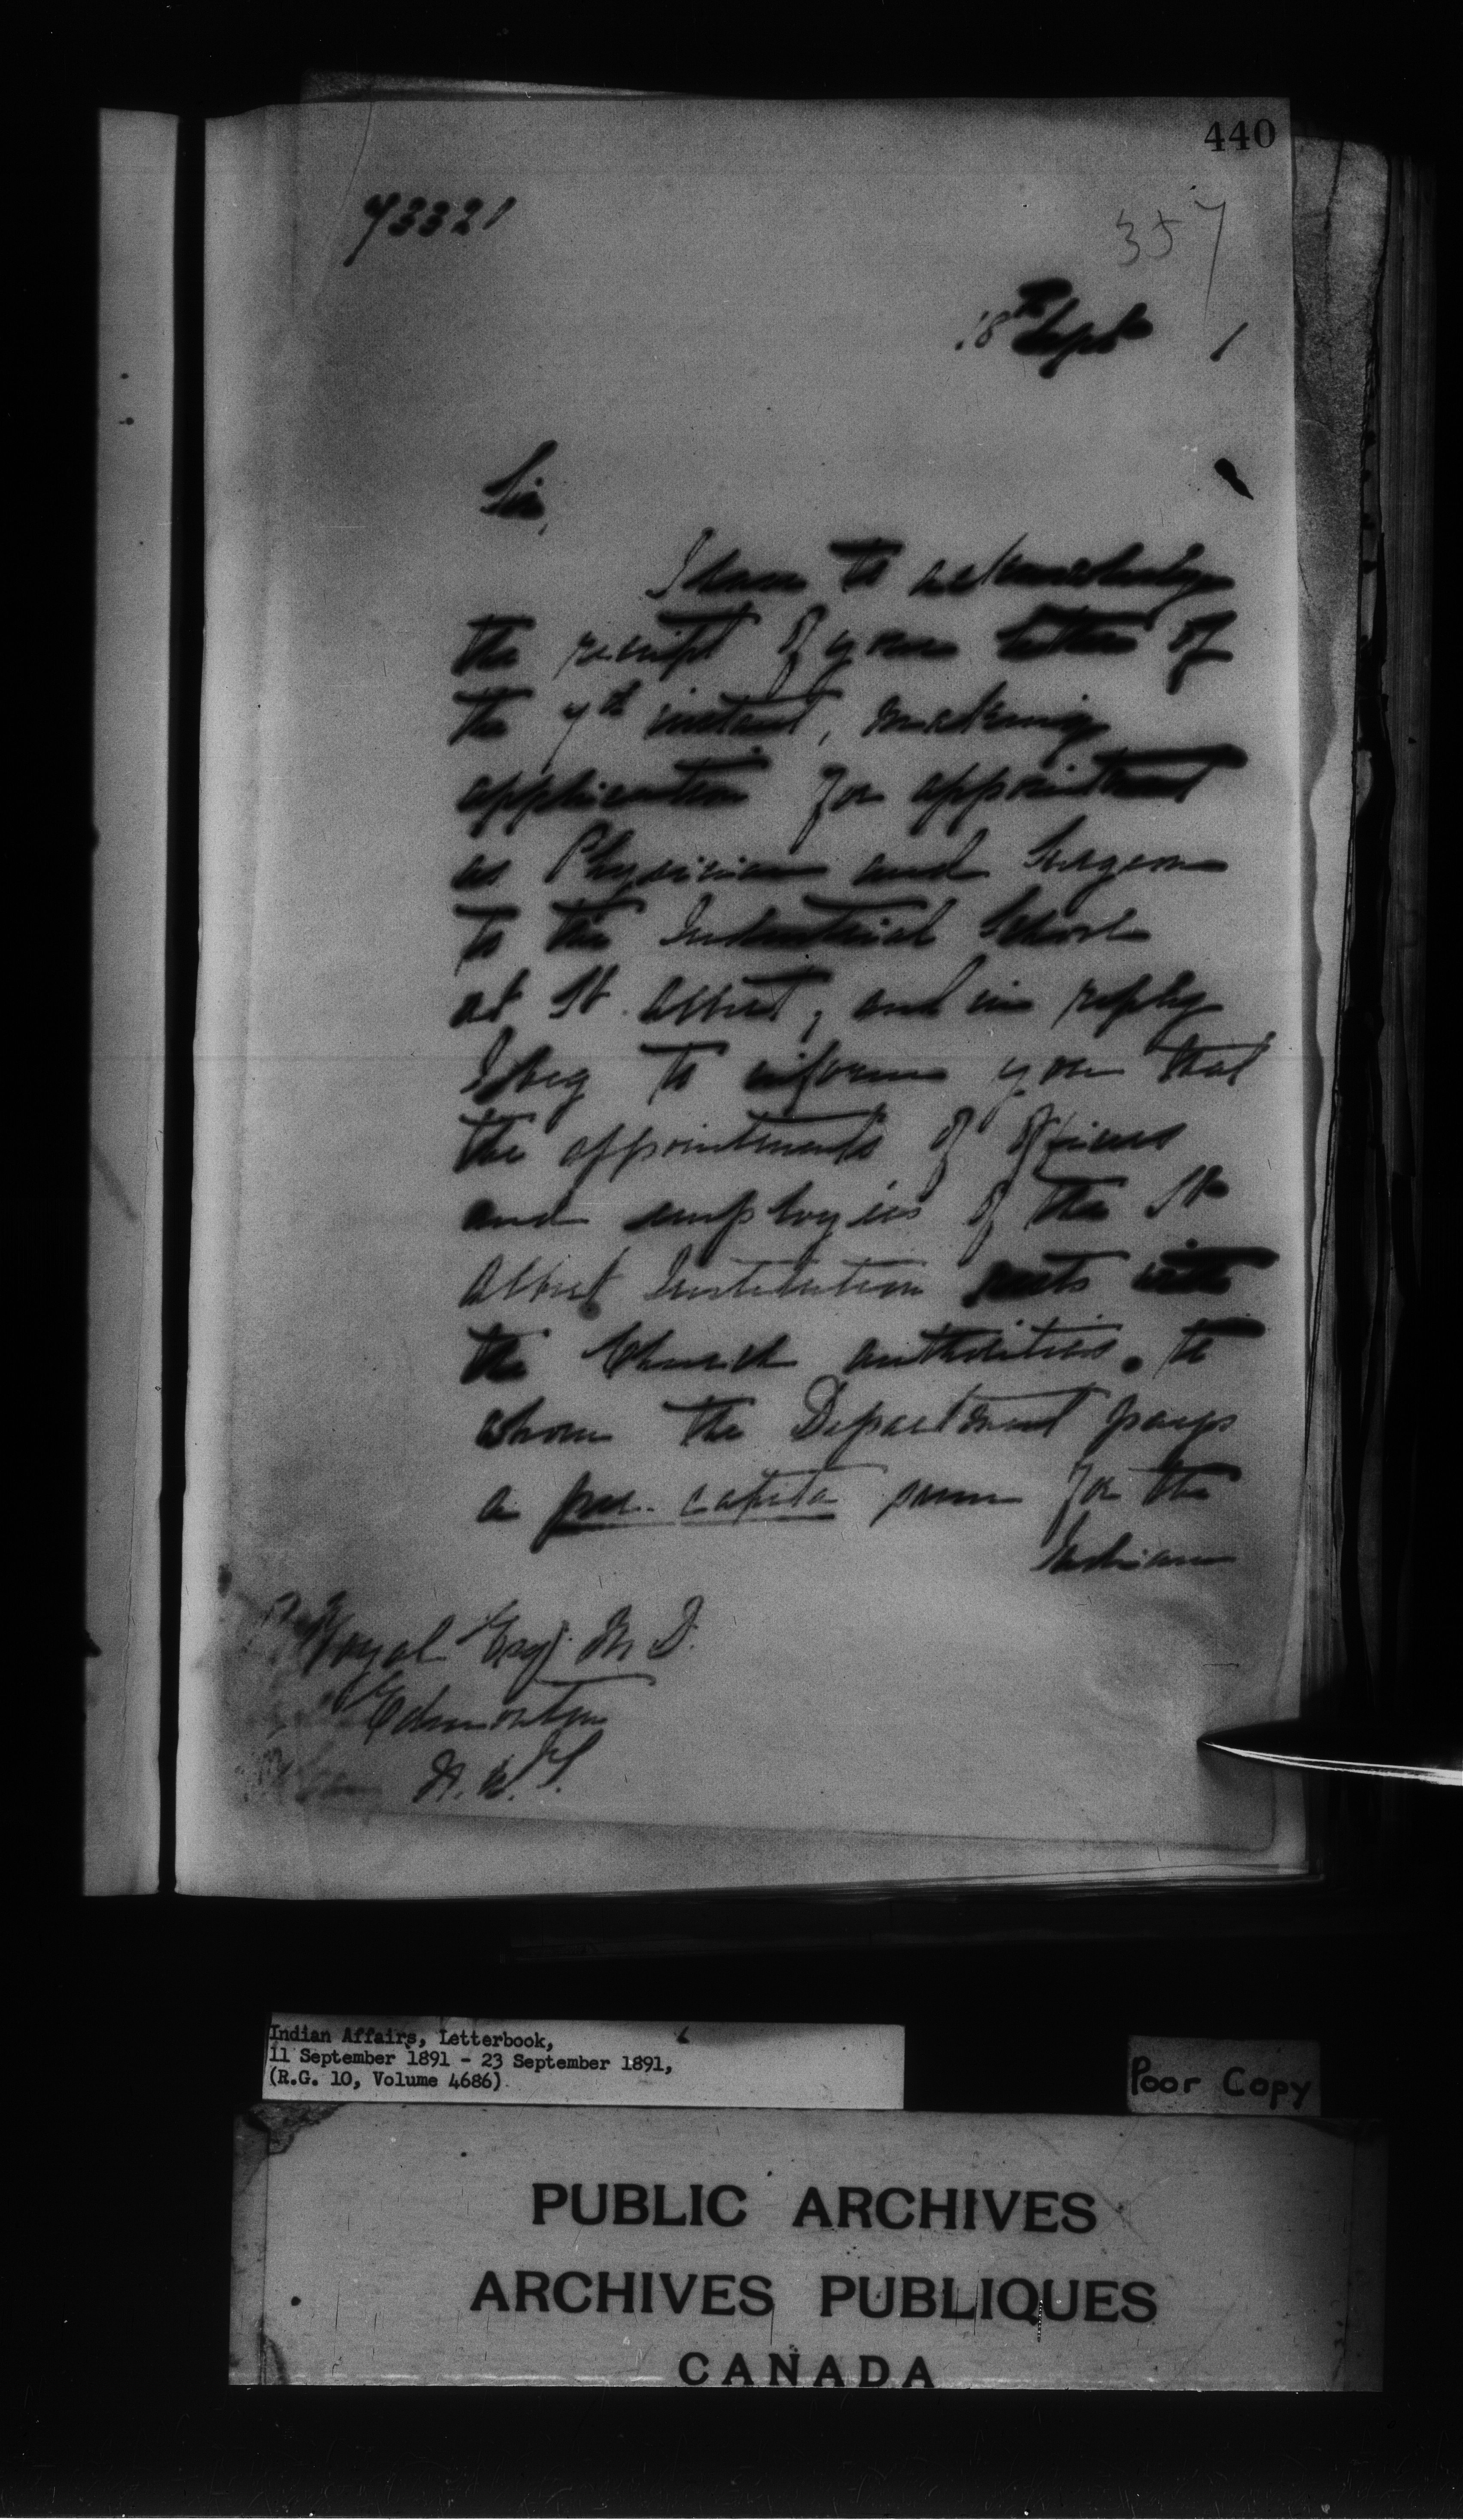 440
73321
357
18th Sept 1
Sir,
I have to acknowledge
the receipt of your letter of
the 7th instant, making
application for appointment
as Physician and Surgeon
to the Industrial School
at St. Albert, and in reply
I beg to inform you that
the appointments of officers
and employees of the St
Albert Institution rests with
the Church authorities, to
whom the Department pays
a per capita sum for the
Indian
Royal Esq. M D.
Edmonton
N. W. T.
Indian Affairs, Letterbook,
11 September 1891 - 23 September 1891,
(R.G. 10, Volume 4686)
Poor Copy
PUBLIC ARCHIVES
ARCHIVES PUBLIQUES
CANADA